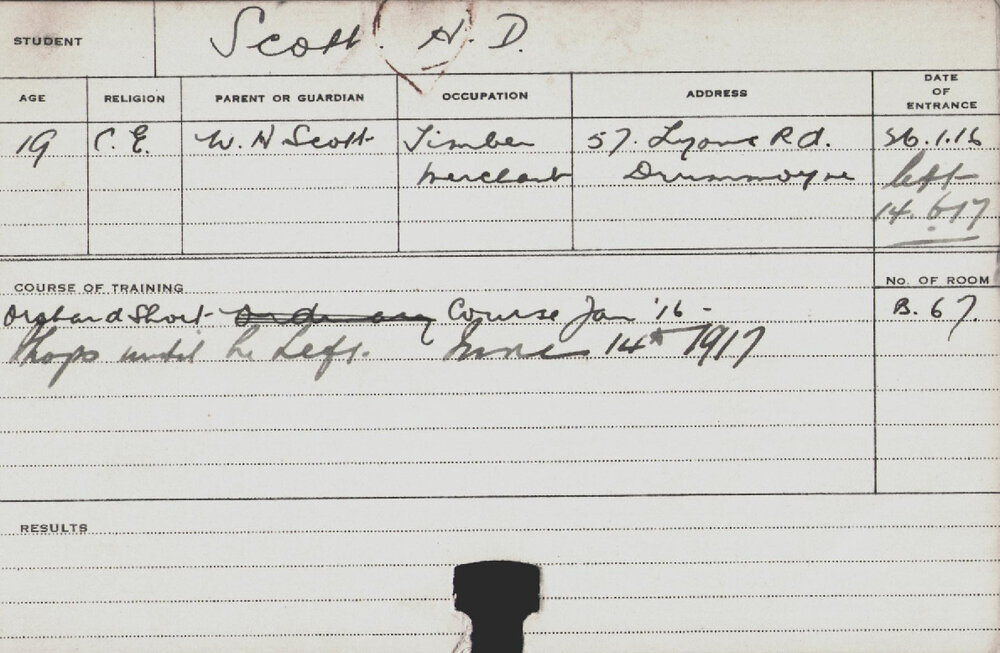 STUDENT Scott. H. D.
AGE RELIGION PARENT OR GUARDIAN OCCUPATION ADDRESS DATE OF ENTRANCE
19 C.E. W. H Scott Timber 57. Lyons Rd. 26.1.16
Merchant Drummoyne left
14.6.17
COURSE OF TRAINING No. OF ROOM
Orchard Short Course Jan '16 - B. 67.
Shops until he left. June 14th 1917
RESULTS